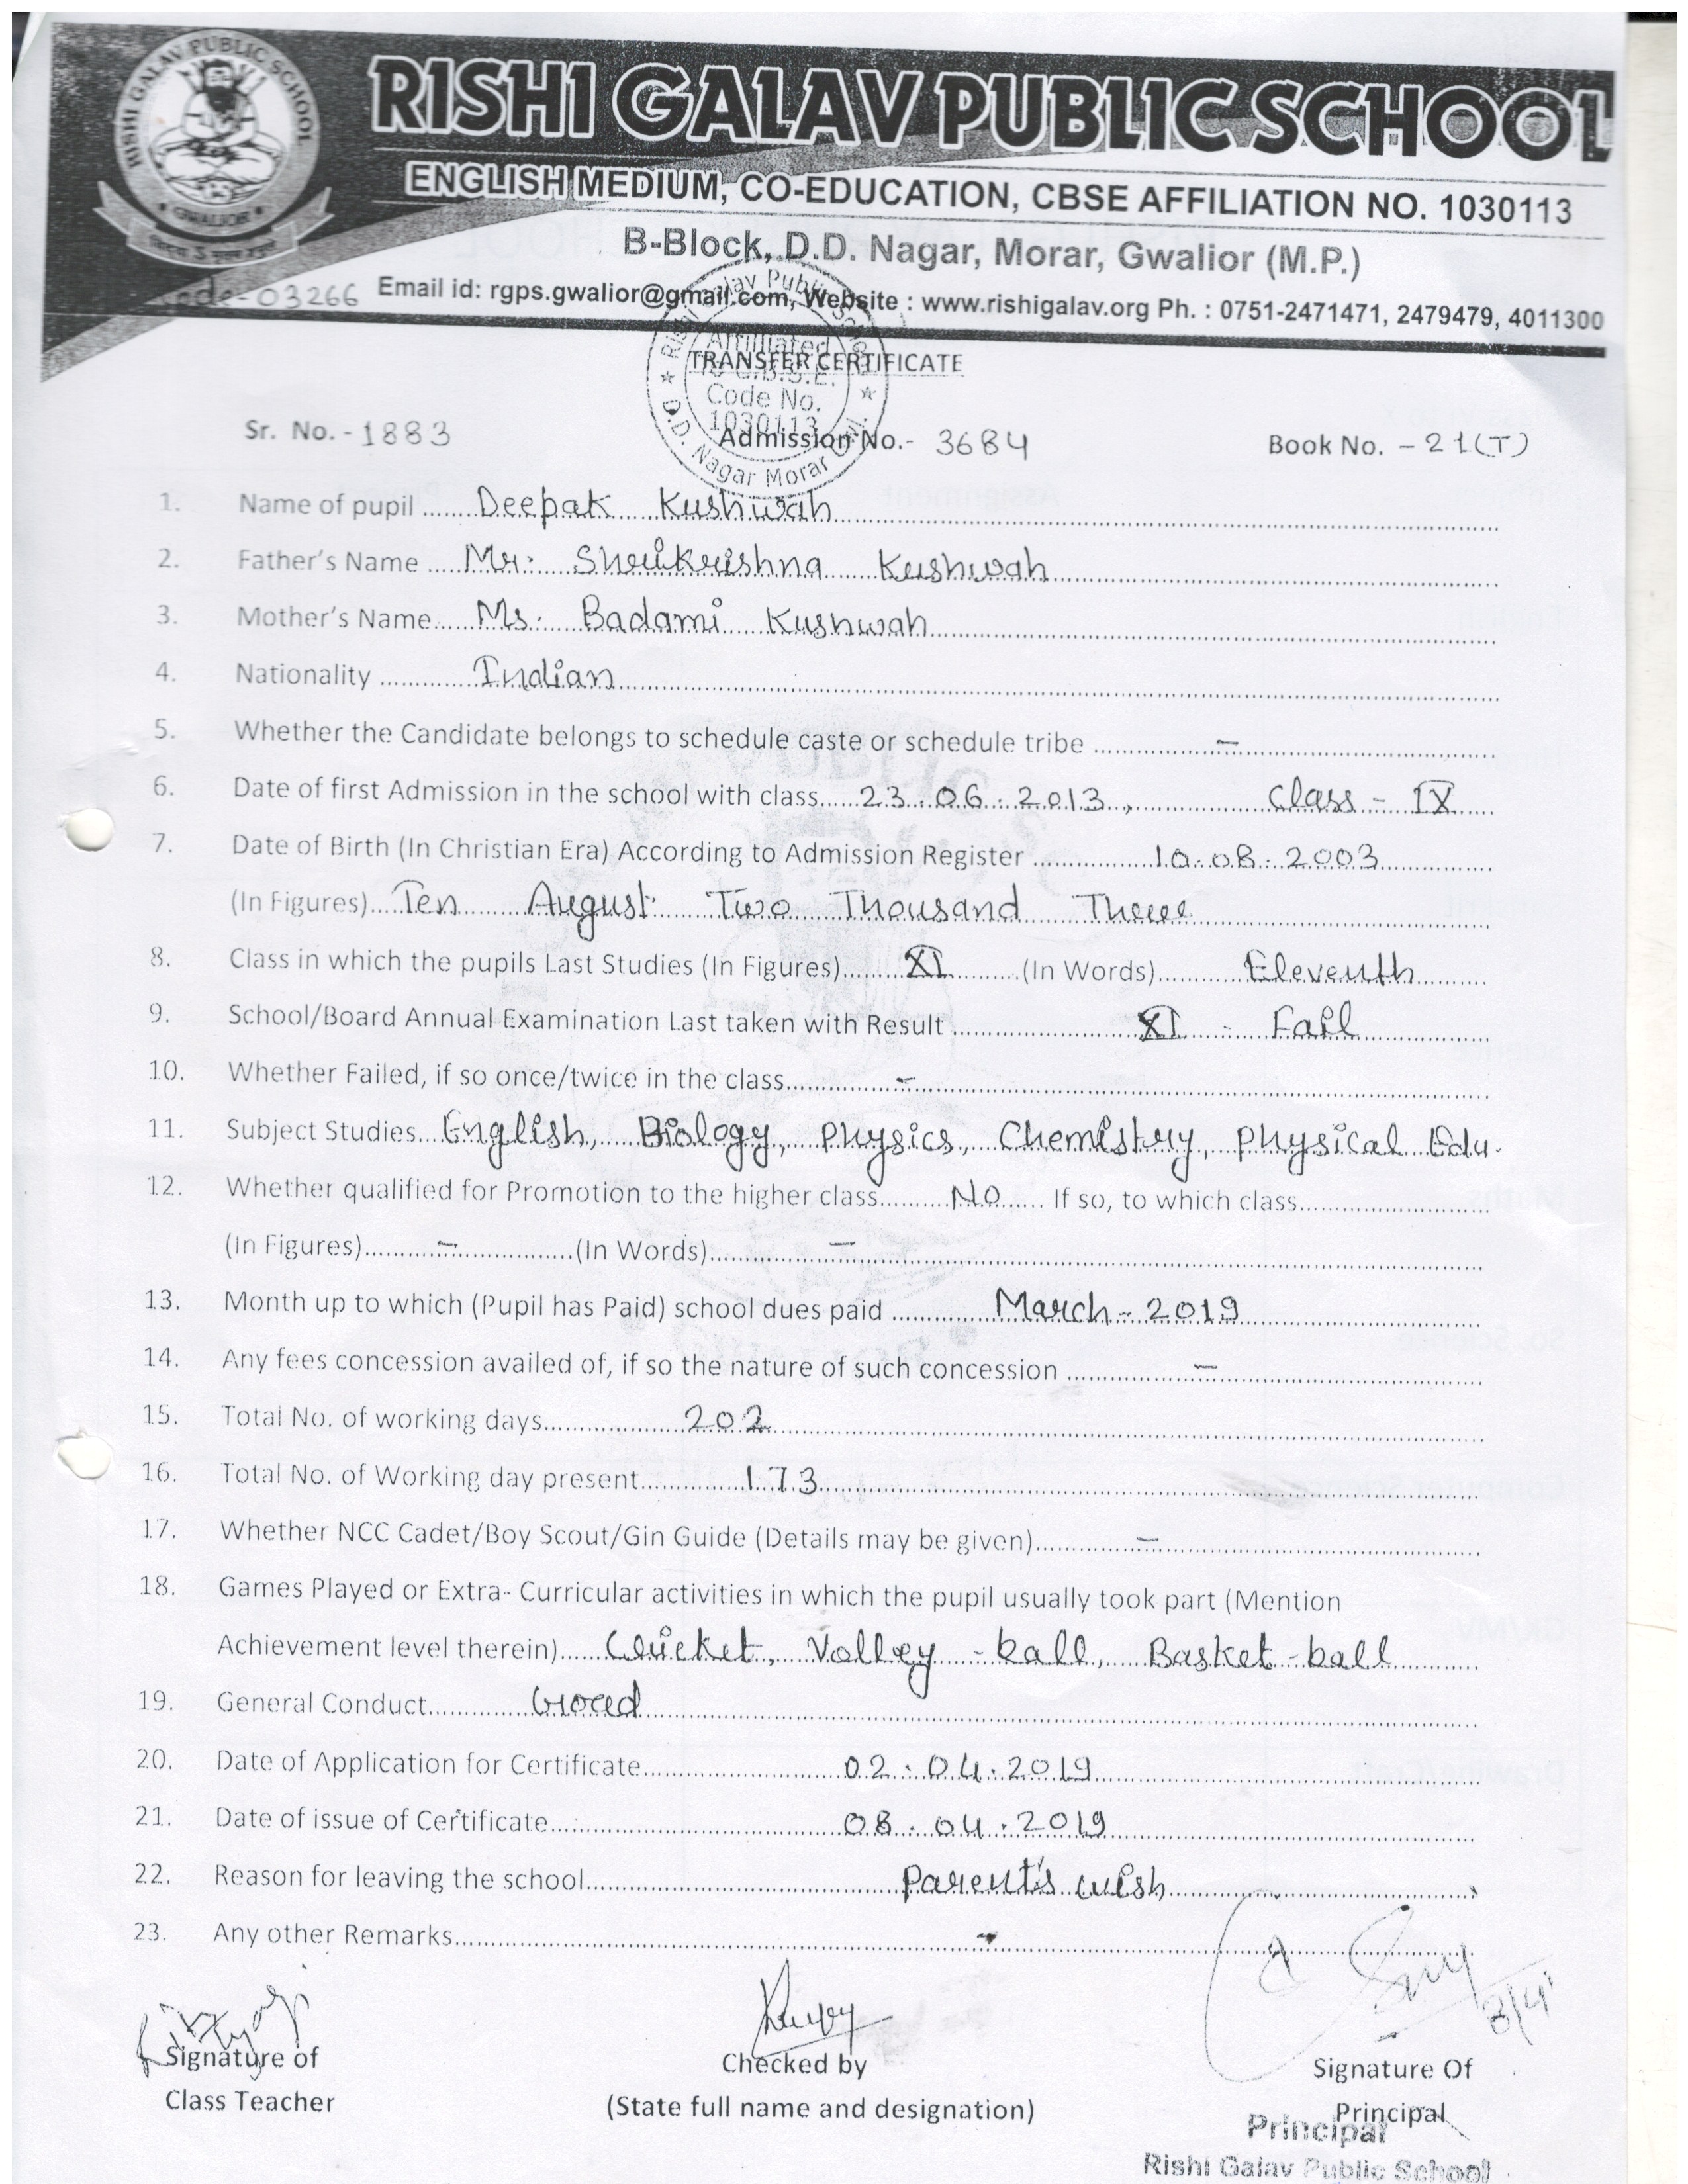 RISHI GALAV PUBLIC SCHOOL
GWALIOR
RISHI GALAV PUBLIC SCHOOL
ENGLISH MEDIUM, CO-EDUCATION, CBSE AFFILIATION NO. 1030113
B-Block, D.D. Nagar, Morar, Gwalior (M.P.)
Code-03266 Email id: rgps.gwalior@gmail.com, Website : www.rishigalav.org Ph. : 0751-2471471, 2479479, 4011300
Affiliated
TRANSFER CERTIFICATE
C.B.S.E.
Code No.
1030113
D.D. Nagar Morar
Sr. No. - 1883 Admission No.- 3684 Book No. - 21(T)
1. Name of pupil ...... Deepak Kushwah
2. Father's Name .... Mr. Shrikrishna Kushwah
3. Mother's Name..... Ms. Badami Kushwah
4. Nationality ............ Indian
5. Whether the Candidate belongs to schedule caste or schedule tribe ........ –
6. Date of first Admission in the school with class..... 23.06.2013, Class - IX
7. Date of Birth (In Christian Era) According to Admission Register ........ 10.08.2003
(In Figures)... Ten August Two Thousand Three
8. Class in which the pupils Last Studies (In Figures)...... XI ......(In Words)...... Eleventh
9. School/Board Annual Examination Last taken with Result ........ XI - Fail
10. Whether Failed, if so once/twice in the class........ –
11. Subject Studies... English, Biology, Physics, Chemistry, Physical Edu.
12. Whether qualified for Promotion to the higher class........ No ..... If so, to which class........
(In Figures)........ – ........(In Words)........ –
13. Month up to which (Pupil has Paid) school dues paid ........ March - 2019
14. Any fees concession availed of, if so the nature of such concession ........ –
15. Total No. of working days........ 202
16. Total No. of Working day present........ 173
17. Whether NCC Cadet/Boy Scout/Gin Guide (Details may be given)........ –
18. Games Played or Extra- Curricular activities in which the pupil usually took part (Mention
Achievement level therein)..... Cricket, Volley - ball, Basket - ball
19. General Conduct........ Good
20. Date of Application for Certificate........ 02.04.2019
21. Date of issue of Certificate........ 08.04.2019
22. Reason for leaving the school........ Parent's wish
23. Any other Remarks........ –
Signature of Checked by Signature Of
Class Teacher (State full name and designation) Principal
Principal
Rishi Galav Public School